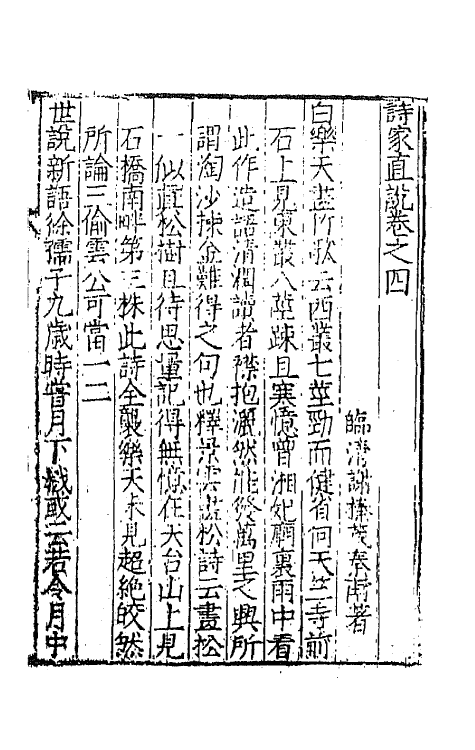 詩家直說卷之四
臨清謝榛茂秦甫著
白樂天畫竹歌云西叢七莖勁而健省向天竺寺前
石上見東叢八莖疎且寒憶曾湘妃廟裏雨中看
此作造語清潤讀者襟抱灑然能發萬里之興所
謂淘沙揀金難得之句也釋景雲畫松詩云畫松
一似真松樹且待思量記得無憶在天台山上見
石橋南畔第三株此詩全襲樂天未見超絕皎然
所論三偷雲公可當一二
世說新語徐孺子九歲時嘗月下戲或云若令月中